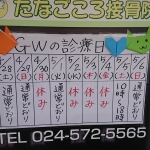 たなごころ接骨院
GWの診療日
4/28(土) 4/29(日) 4/30(月) 5/1(火) 5/2(水) 5/3(木) 5/4(金) 5/5(土) 5/6(日)
通常どおり 休み 休み 通常どおり 通常どおり 休み 休み 10時〜18時 通常どおり
TEL 024-572-5565